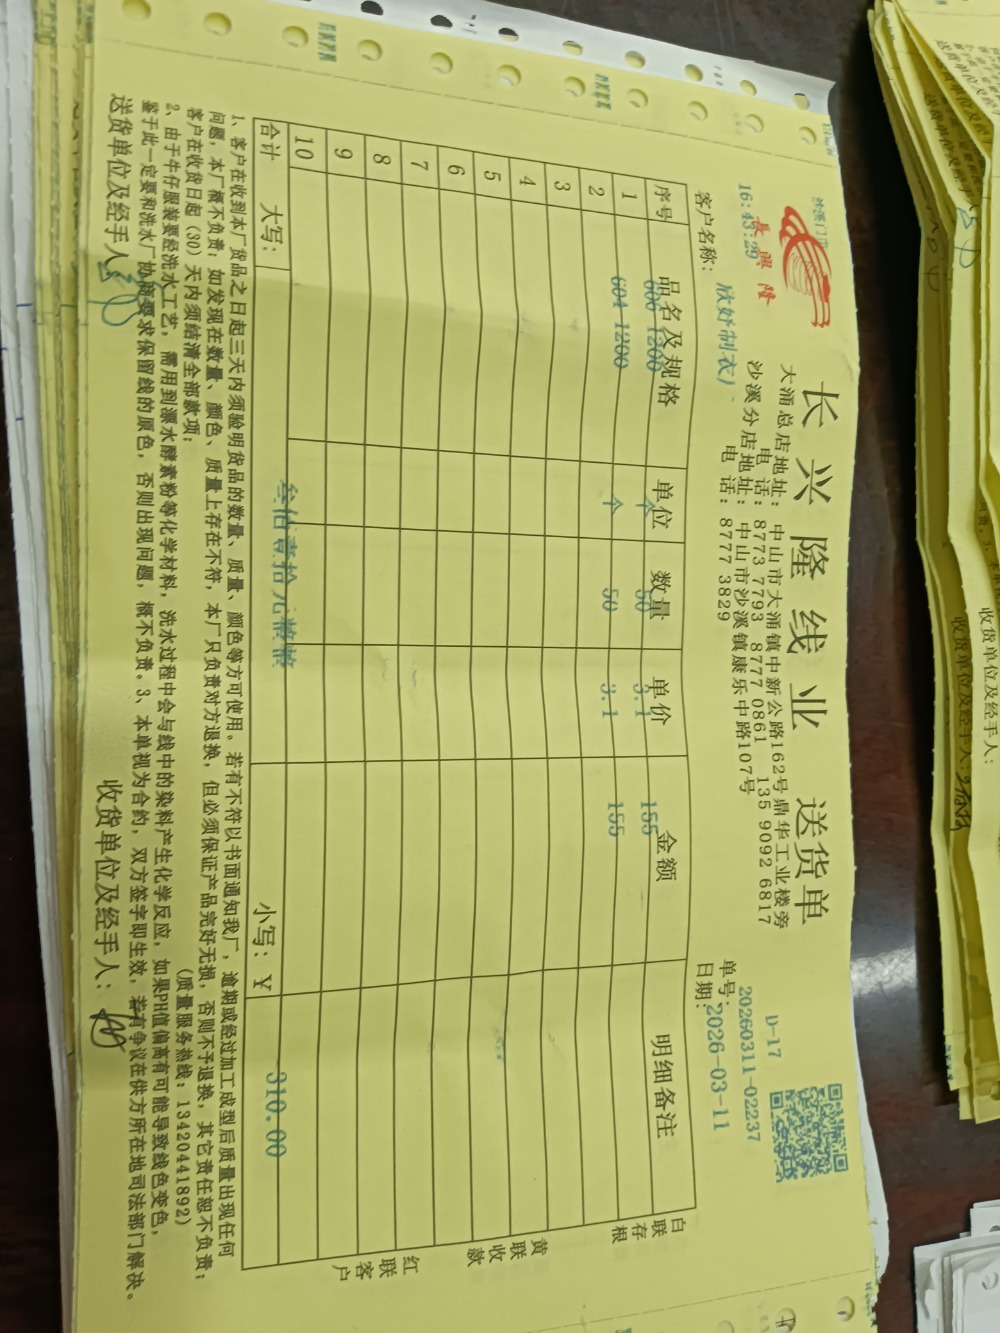 长兴隆线业 送货单
沙溪门市
長興隆
16:43:29
大涌总店地址：中山市大涌镇中新公路162号鼎华工业楼旁
电 话：8773 7793 8777 0861 135 9092 6817
沙溪分店地址：中山市沙溪镇康乐中路107号
电 话：8777 3829
D-17
单号：20260311-02237
日期：2026-03-11
客户名称：欣妤制衣厂
序号 品名及规格 单位 数量 单价 金额 明细备注
1 606 1200 个 50 3.1 155
2 604 1200 个 50 3.1 155
3
4
5
6
7
8
9
10
合计 大写：叁佰壹拾元整 小写：¥ 310.00
白联存根
黄联收款
红联客户
1、客户在收到本厂货品之日起三天内须验明货品的数量、质量、颜色等方可使用。若有不符以书面通知我厂，逾期或经过加工成型后质量出现任何
问题，本厂概不负责；如发现在数量、颜色、质量上存在不符，本厂只负责对方退换，但必须保证产品完好无损，否则不予退换，其它责任恕不负责；
客户在收货日起（30）天内须结清全部款项；
（质量服务热线：13420441892）
2、由于牛仔服装要经洗水工艺，需用到漂水酵素粉等化学材料，洗水过程中会与线中的染料产生化学反应，如果PH值偏高有可能导致线色变色，
鉴于此一定要和洗水厂协商要求保留线的原色，否则出现问题，概不负责。3、本单视为合约，双方签字即生效，若有争议在供方所在地司法部门解决。
送货单位及经手人：
收货单位及经手人：
收货单位及经手人：
收货单位及经手人：